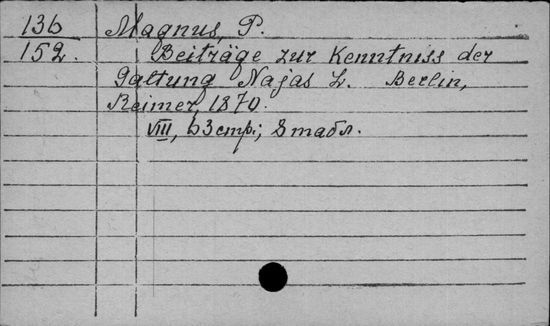 136 Magnus, P.
152. Beiträge zur Kenntniss der
Galtung Najas L. Berlin,
Reimer, 1870.
VIII, 63 стр.; 8 табл.